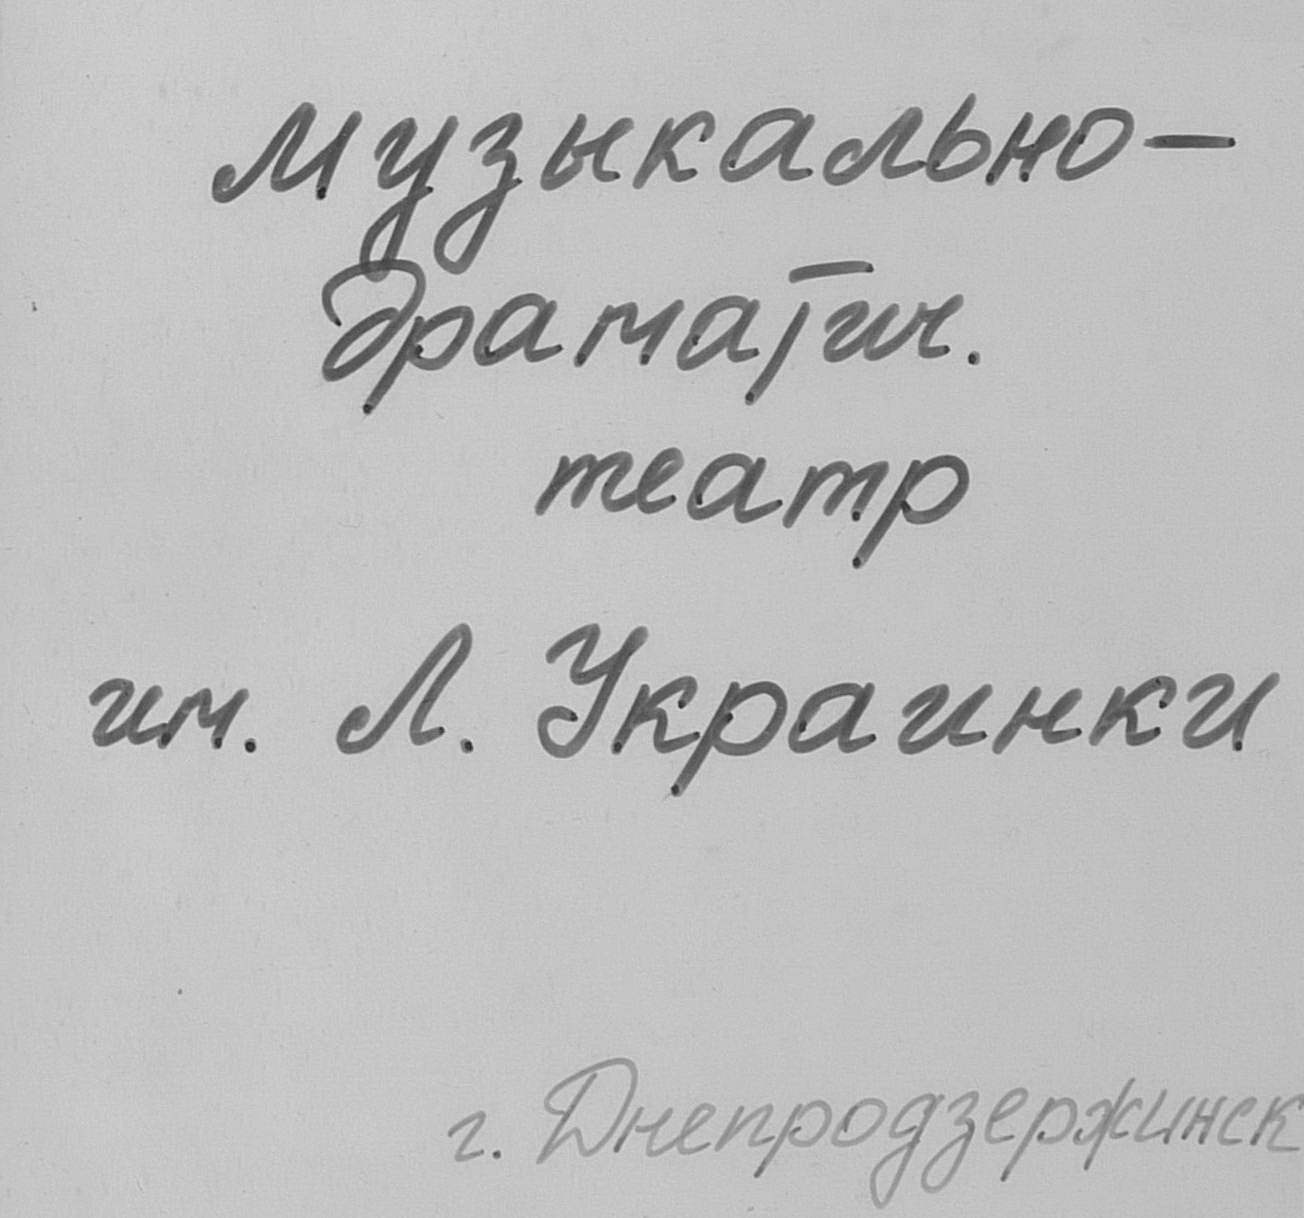 Музыкально-
драматич.
театр
им. Л. Украинки
г. Днепродзержинск